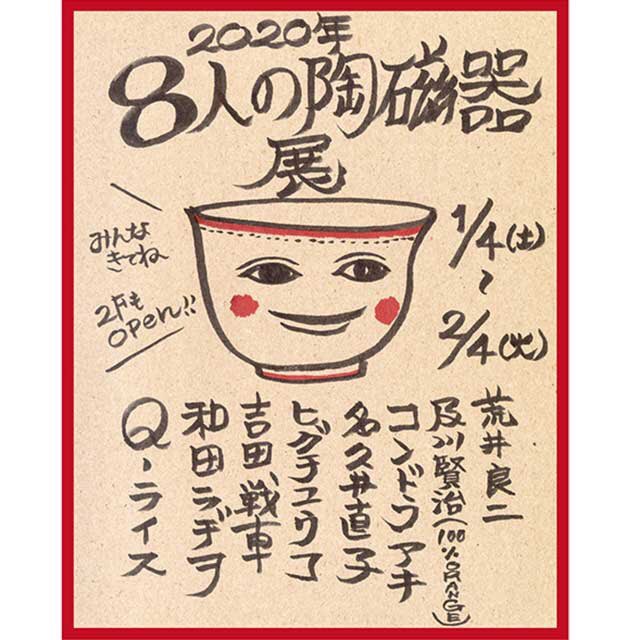 2020年
8人の陶磁器
展
みんな
きてね
2Fも
OPEN!!
1/4(土)
〜
2/4(火)
荒井良二
及川賢治(100%ORANGE)
コンドウアキ
名久井直子
ヒグチユウコ
吉田戦車
和田ラヂヲ
Q-ライス